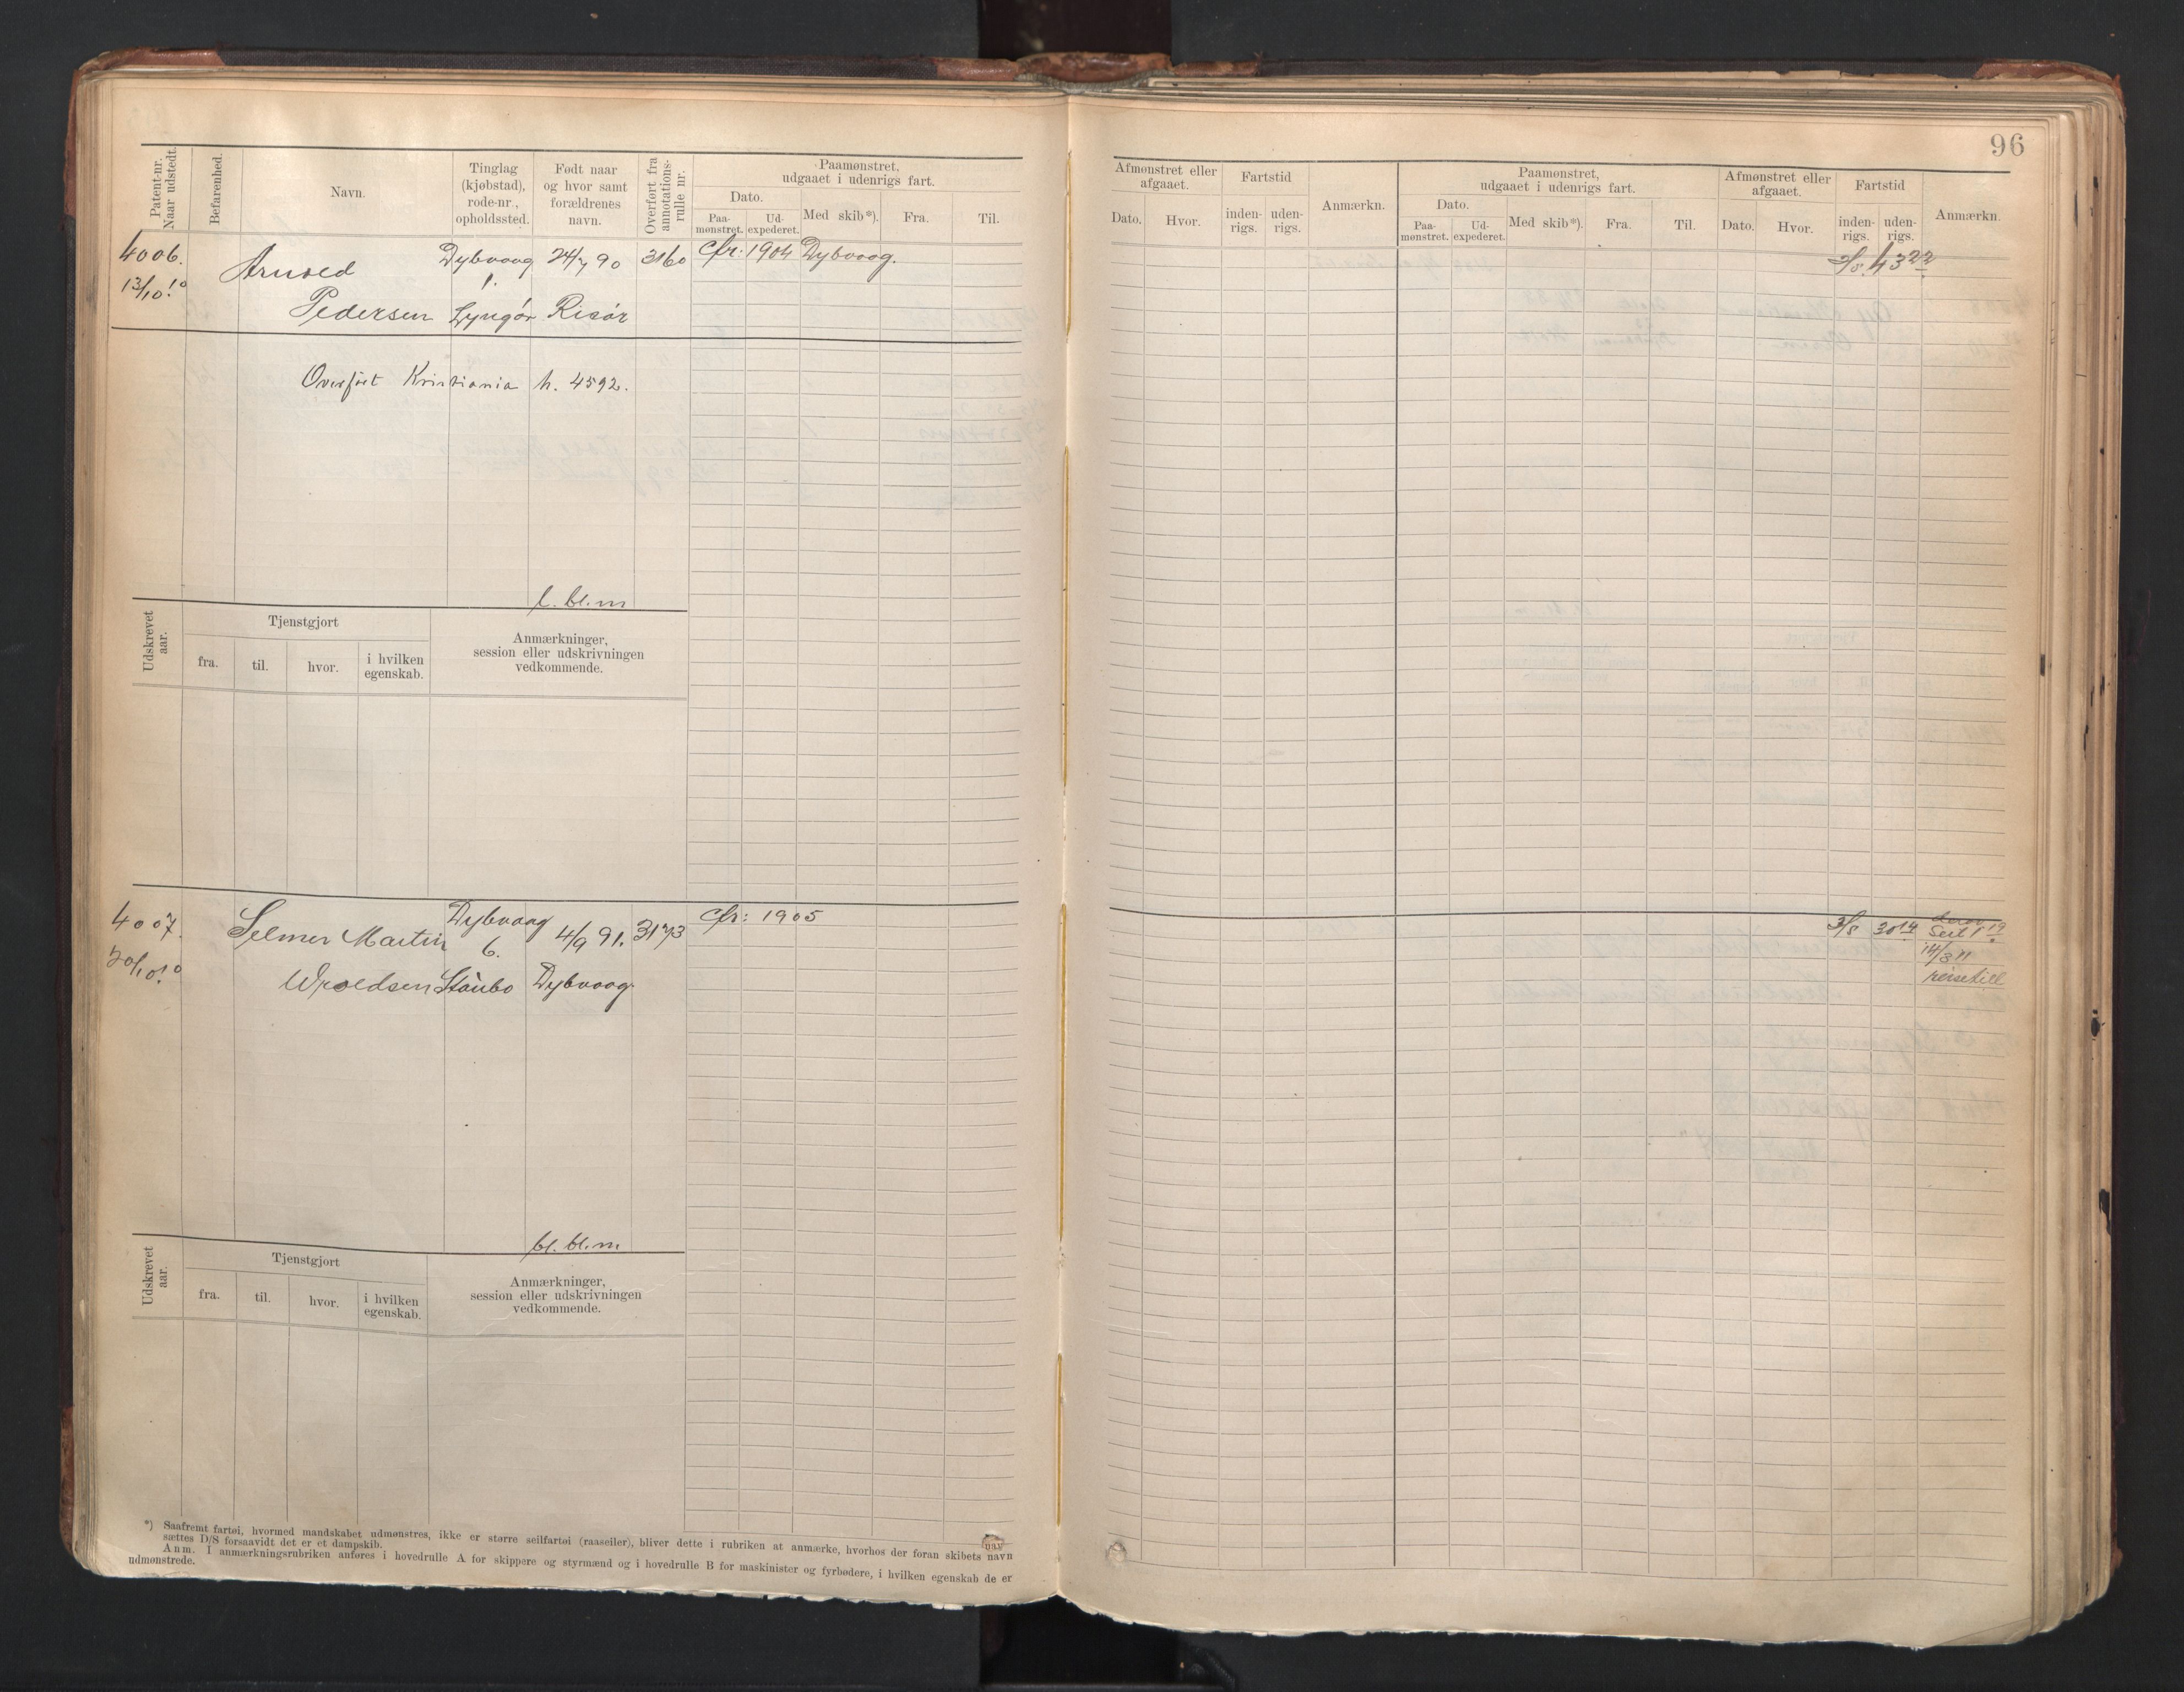 96
Patent-nr.
Naar udstedt.
Befarenhed.
Navn.
Tinglag
(kjøbstad),
rode-nr.,
opholdssted.
Født naar
og hvor samt
forældrenes
navn.
Overført fra
annotations-
rulle nr.
Paamønstret,
udgaaet i udenrigs fart.
Dato.
Paa-
mønstret.
Ud-
expederet.
Med skib*).
Fra.
Til.
Afmønstret eller
afgaaet.
Dato.
Hvor.
Fartstid
inden-
rigs.
uden-
rigs.
Anmærkn.
Paamønstret,
udgaaet i udenrigs fart.
Dato.
Paa-
mønstret.
Ud-
expederet.
Med skib*).
Fra.
Til.
Afmønstret eller
afgaaet.
Dato.
Hvor.
Fartstid
inden-
rigs.
uden-
rigs.
Anmærkn.
4006. Arnold Dybvaag 24/7 90 3160 Cfr: 1904 Dybvaag. 3/8. 43 22
13/10.10 1.
Pedersen Lyngør Risør
Overført Kristiania h. 4592.
l. bl. m
Udskrevet
aar.
Tjenstgjort
fra.
til.
hvor.
i hvilken
egenskab.
Anmærkninger,
session eller udskrivningen
vedkommende.
4007. Selmer Martin Dybvaag 4/9 91. 3173 Cfr: 1905 3/8 30 14
20/10.10 6.
Wroldsen Staubo Dybvaag.
Seil 1 19
14/3 11
reisetill
bl. bl. m
Udskrevet
aar.
Tjenstgjort
fra.
til.
hvor.
i hvilken
egenskab.
Anmærkninger,
session eller udskrivningen
vedkommende.
*) Saafremt fartøi, hvormed mandskabet udmønstres, ikke er større seilfartøi (raaseiler), bliver dette i rubriken at anmærke, hvorhos der foran skibets navn
sættes D/S forsaavidt det er et dampskib.
Anm. I anmærkningsrubriken anføres i hovedrulle A for skippere og styrmænd og i hovedrulle B for maskinister og fyrbødere, i hvilken egenskab de er
udmønstrede.